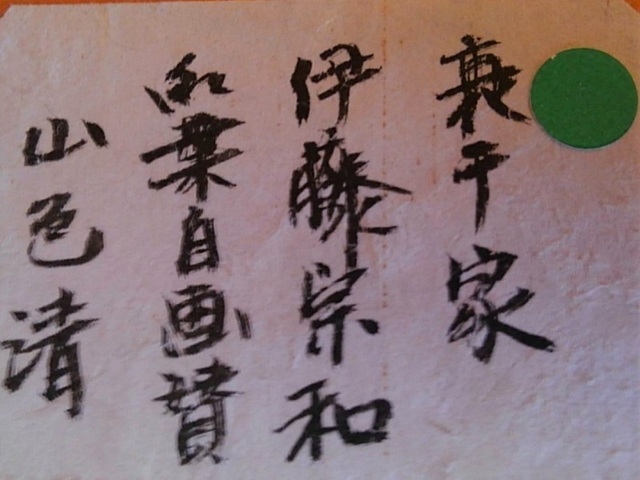 裏千家
伊藤宗和
紅葉自画賛
山色清